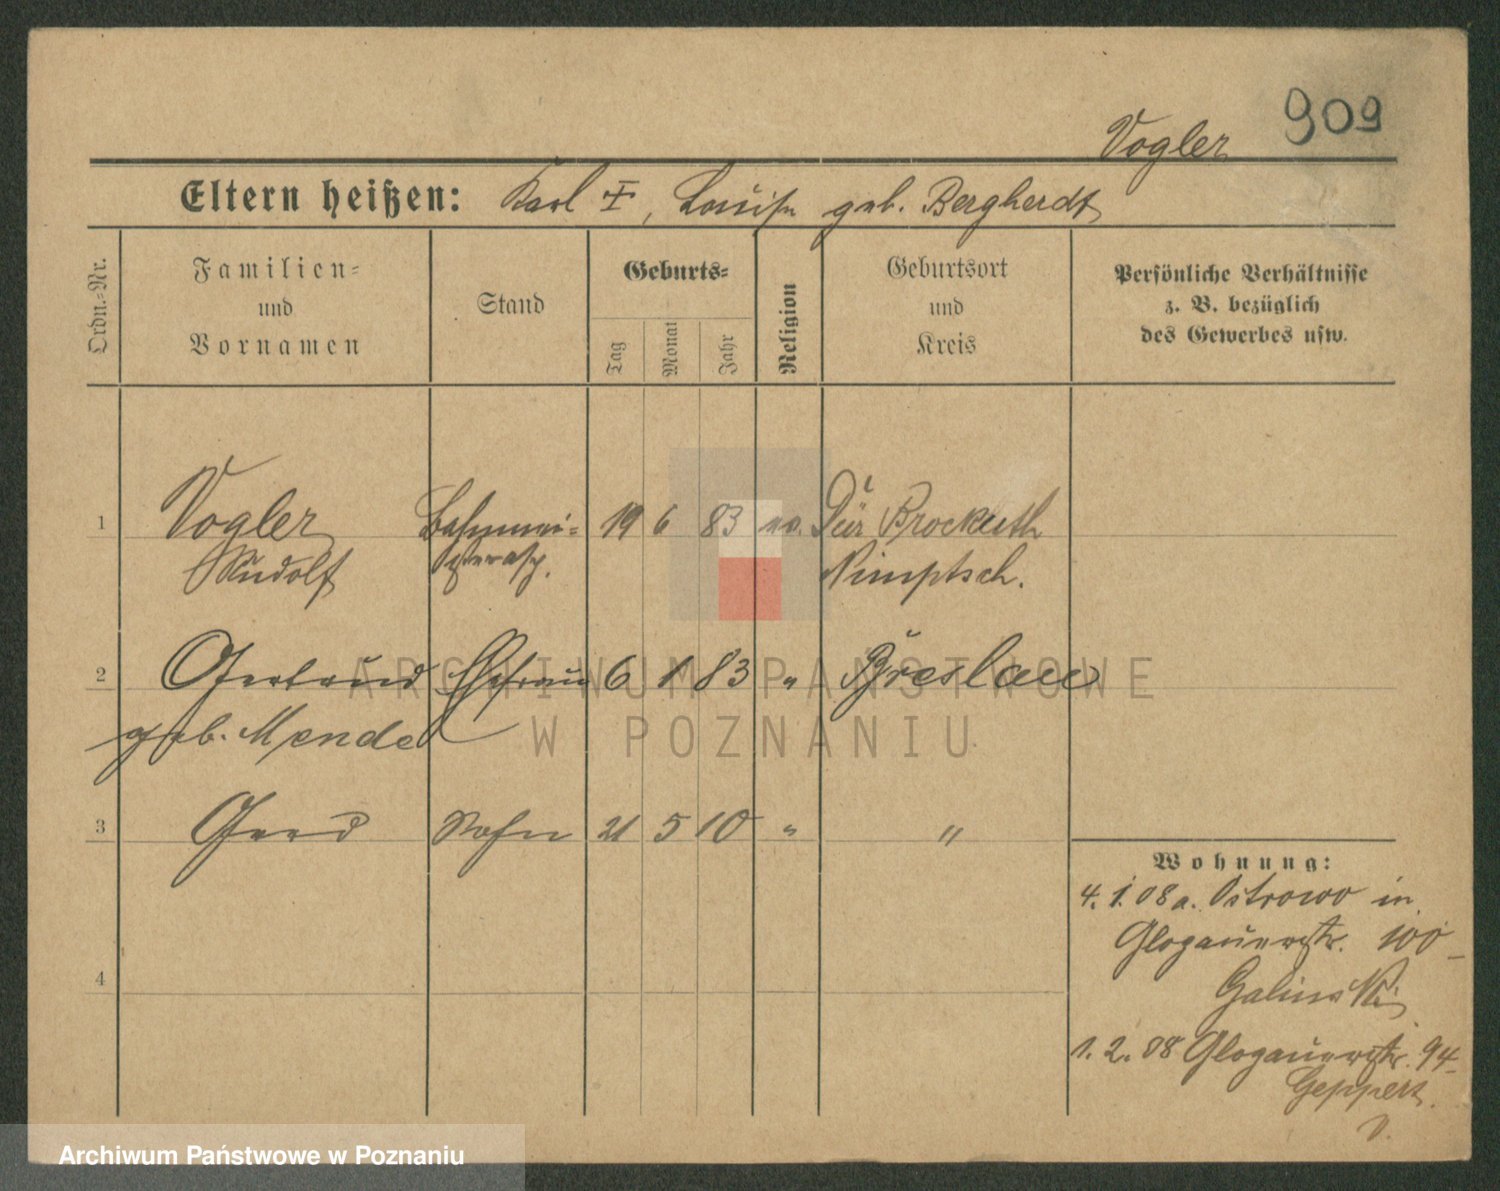 909
Vogler
Eltern heißen: Karl †, Louise geb. Bergherdt
Ordn.-Nr.
Familien-
und
Vornamen
Stand
Geburts-
Tag
Monat
Jahr
Religion
Geburtsort
und
Kreis
Persönliche Verhältnisse
z. B. bezüglich
des Gewerbes usw.
1 Vogler Bahnmei- 19 6 83 ev. Dür Brockuth
Rudolf sterasp. Nimptsch.
2 Gertrud Ehefrau 6 1 83 " Breslau
geb. Mende
3 Gerd Sohn 21 5 10 " "
4
Wohnung:
4. 1. 08 a. Ostrowo in
Glogauerstr. 100
Galinski
1. 2. 08 Glogauerstr. 94
Geppert.
V.
ARCHIWUM PAŃSTWOWE
W POZNANIU
Archiwum Państwowe w Poznaniu